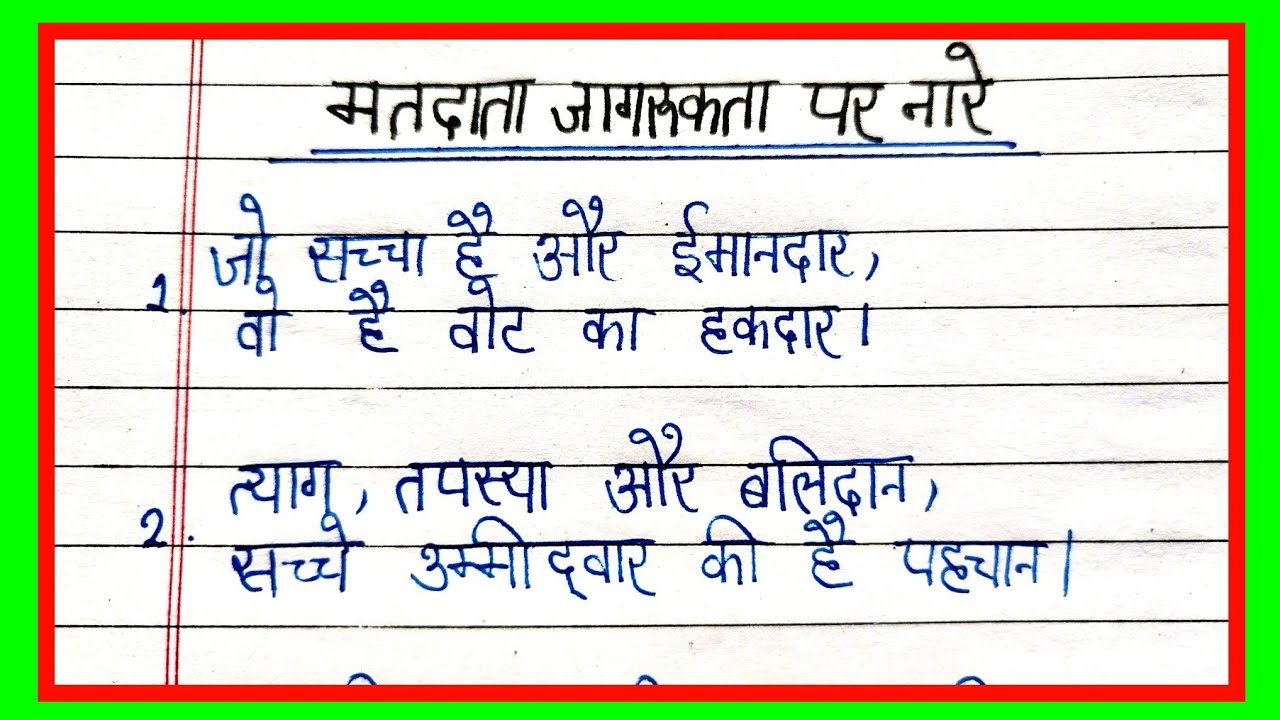 मतदाता जागरूकता पर नारे
1. जो सच्चा है और ईमानदार,
वो है वोट का हकदार।
2. त्याग, तपस्या और बलिदान,
सच्चे उम्मीद्वार की है पहचान।